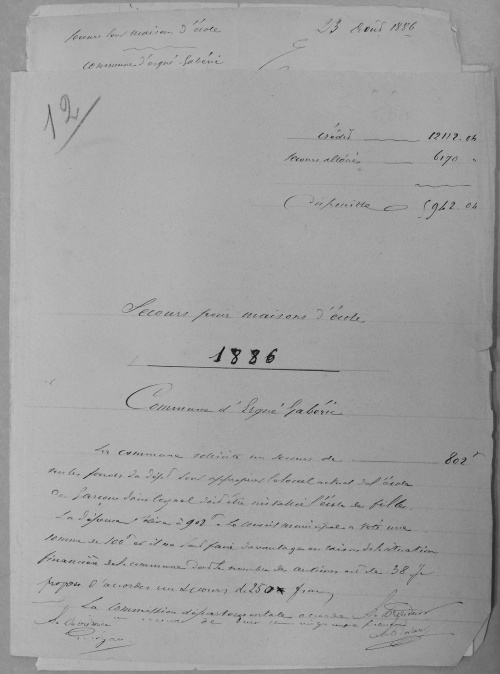 Secours pour maison d'école
23 Août 1886
Commune d'Ergué-Gabéric
12
crédit 12112 04
secours alloués 6170 "
Disponible 5942 04
Secours pour maisons d'école
1886
Commune d'Ergué Gabéric
La commune sollicite un secours de 802f
sur les fonds du dépt pour approprier le local actuel de l'école
de garçons dans lequel doit être installée l'école de filles.
La dépense s'élève à 902f. Le Conseil municipal a voté une
somme de 100f et il ne peut faire davantage en raison de la situation
financière de la commune dont le nombre de centimes est de 38. Je
propose d'accorder un secours de 250 francs
La Commission départementale accorde
Le Président
secours de